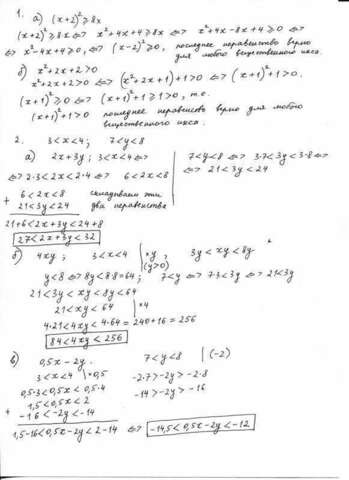 1. а) (x+2)² ⩾ 8x
(x+2)² ⩾ 8x ⇔ x²+4x+4 ⩾ 8x ⇔ x²+4x-8x+4 ⩾ 0 ⇔
⇔ x²-4x+4 ⩾ 0, ⇔ (x-2)² ⩾ 0, последнее неравенство верно
для любого вещественного икса.
б) x²+2x+2>0
x²+2x+2>0 ⇔ (x²+2x+1)+1>0 ⇔ (x+1)²+1>0.
(x+1)² ⩾ 0 ⇔ (x+1)²+1 ⩾ 1>0, т.е.
(x+1)²+1>0 последнее неравенство верно для любого
вещественного икса.
2. 3<x<4; 7<y<8
а) 2x+3y; 3<x<4 ⇔
⇔ 2·3<2x<2·4 ⇔ 6<2x<8
7<y<8 ⇔ 3·7<3y<3·8 ⇔
⇔ 21<3y<24
6<2x<8 складываем эти
+ 21<3y<24 два неравенства
21+6<2x+3y<24+8
27<2x+3y<32
б) 4xy; 3<x<4 | ·y (y>0), 3y<xy<4y
y<8 ⇔ 8y<8·8=64; 7<y ⇔ 7·3<3y ⇔ 21<3y
21<3y<xy<8y<64
21<xy<64 | ·4
4·21<4xy<4·64=240+16=256
84<4xy<256
в) 0,5x-2y. 7<y<8 | (-2)
3<x<4 | ·0,5 -2·7>-2y>-2·8
0,5·3<0,5x<0,5·4 -14>-2y>-16
1,5<0,5x<2
+ -16<-2y<-14
1,5-16<0,5x-2y<2-14 ⇔ -14,5<0,5x-2y<-12